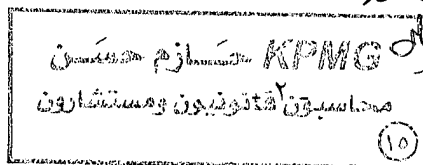 KPMG حازم حسن
محاسبون قانونيون ومستشارون
(١٥)